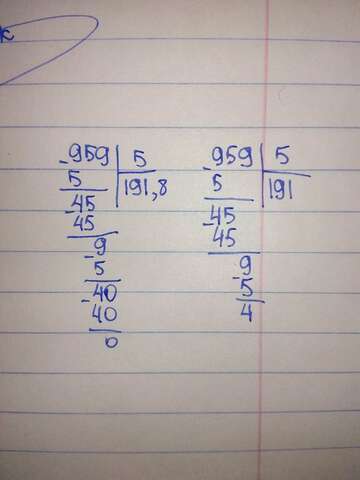 к
-959 | 5
5 191,8
-45
45
-9
5
-40
40
0
-959 | 5
5 191
-45
45
-9
5
4